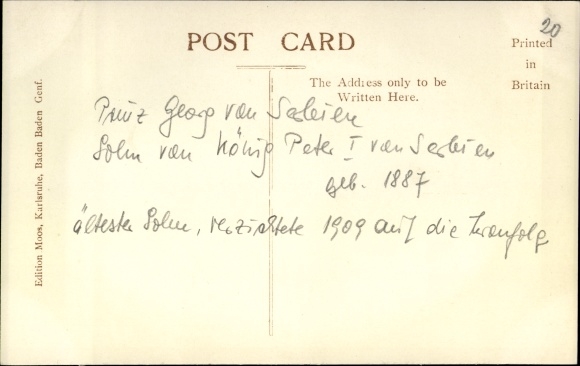 20
POST CARD
Printed
in
Britain
The Address only to be
Written Here.
Edition Moos, Karlsruhe, Baden Baden Genf.
Prinz Georg von Serbien
Sohn von König Peter I von Serbien
geb. 1887
ältester Sohn, verzichtete 1909 auf die Tronfolg